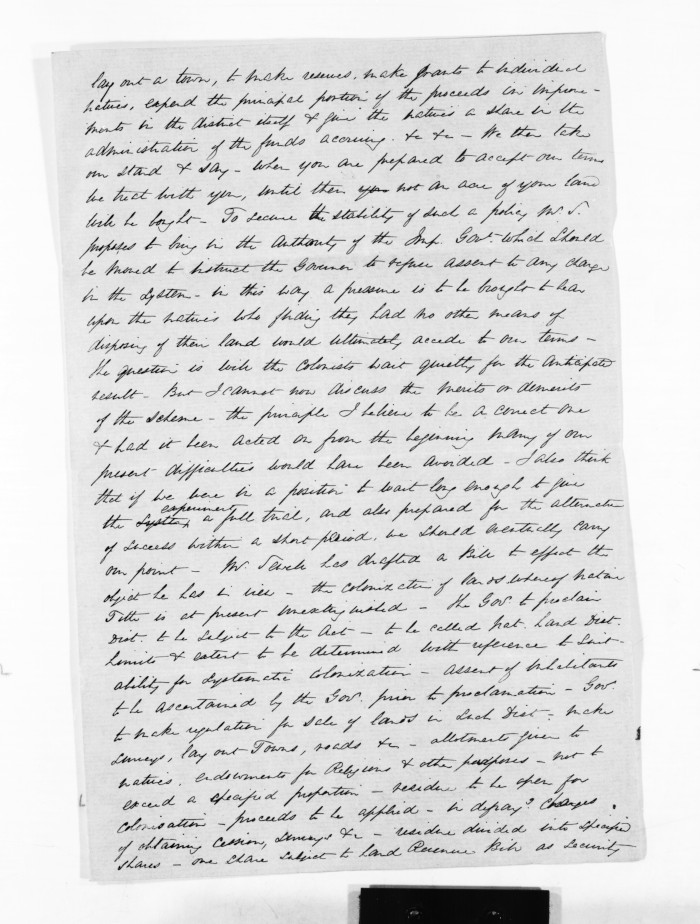 lay out a town, to make reserves, make grants to Individual
natives, expend the principal portion of the proceeds in improve-
ments in the district itself & give the natives a share in the
administration of the funds accruing. &c &c - We then take
our stand & say - when you are prepared to accept our terms
we treat with you, until then not an acre of your land
will be bought - To secure the stability of such a policy Mr. S.
proposes to bring in the Authority of the Imp. Govt. which should
be moved to instruct the Governor to refuse assent to any change
in the system - in this way a pressure is to be brought to bear
upon the natives who finding they had no other means of
disposing of their land would ultimately accede to our terms -
the question is will the colonists wait quietly for the anticipated
result - But I cannot now discuss the merits or demerits
of the scheme - the principle I believe to be a correct one
& had it been acted on from the beginning many of our
present difficulties would have been avoided - I also think
that if we were in a position to wait long enough to give
the system experiment a full trial, and also prepared for the alternative
of success within a short period, we should eventually carry
our point - Mr. Sewell has drafted a Bill to effect the
object he has in view - the colonization of lands whereof Native
Title is at present unextinguished - The Gov. to proclaim
Dist. to be subject to the Act - to be called Nat. Land Dist.
Limits & extent to be determined with reference to suit-
ability for systematic colonization - assent of Inhabitants
to be ascertained by the Gov. prior to proclamation - Gov.
to make regulation for sale of lands in such Dist. make
surveys, lay out Towns, roads &c - allotments given to
natives, endowments for Religious & other purposes - not to
exceed a specified proportion - residue to be open for
colonisation - proceeds to be applied - in defrayg. charges
of obtaining cession, surveys &c - residue divided into specified
shares - one share subject to Land Revenue Bill as security